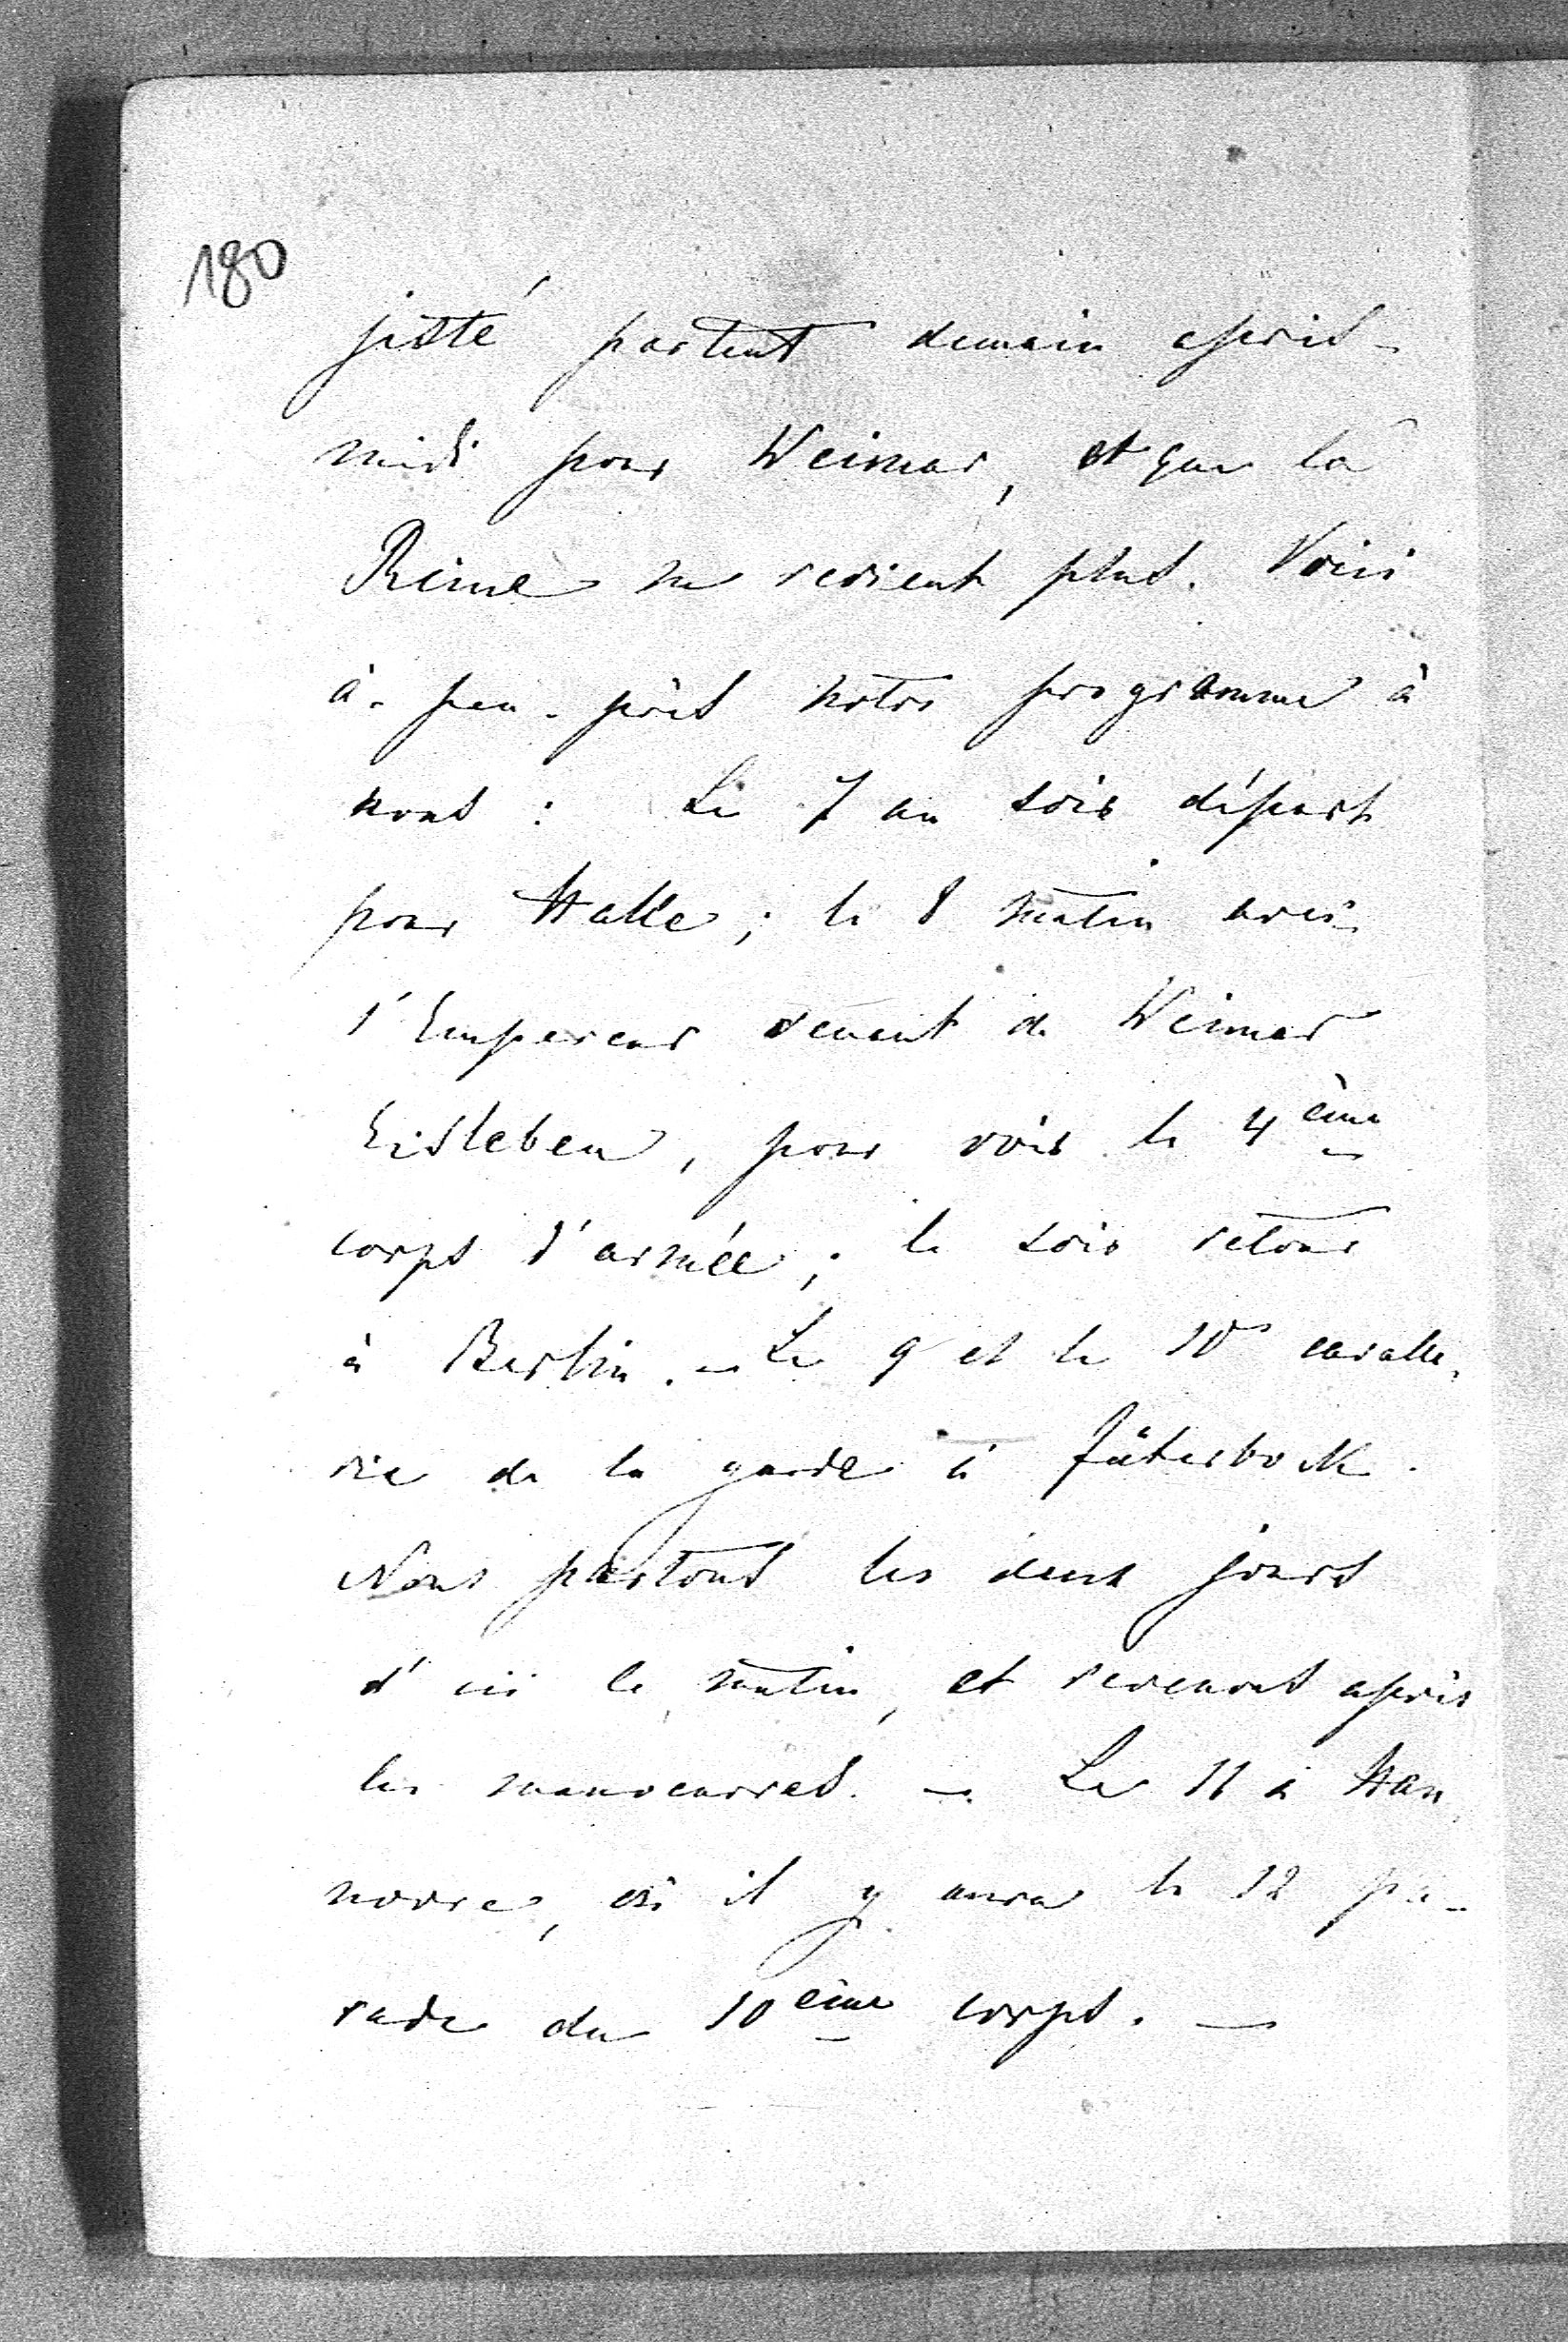 180
jesté partent demain après-
midi pour Weimar, et que la
Reine ne revient plus. Voici
à-peu-près notre programme à
nous : Le 7 au soir départ
pour Halle; le 8 matin avec
l'Empereur venant de Weimar
Eisleben, pour voir le 4ème
corps d'armée; le soir retour
à Berlin. – Le 9 et le 10 cavalle-
rie de la garde à Jüterbock.
Nous partons les deux jours
d'ici le matin, et revenons après
les manoeuvres. – Le 11 à Han-
novre, où il y aura le 12 pa-
rade du 10ème corps. –